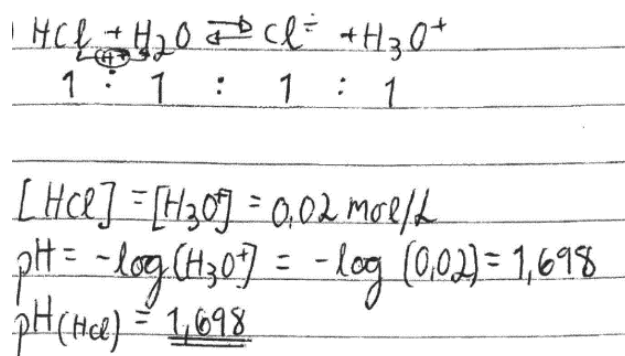 HCl + H₂O ⇌ Cl⁻ + H₃O⁺
H⁺
1 : 1 : 1 : 1
[HCl] = [H₃O⁺] = 0,02 mol/L
pH = -log (H₃O⁺] = -log (0,02) = 1,698
pH (HCl) = 1,698